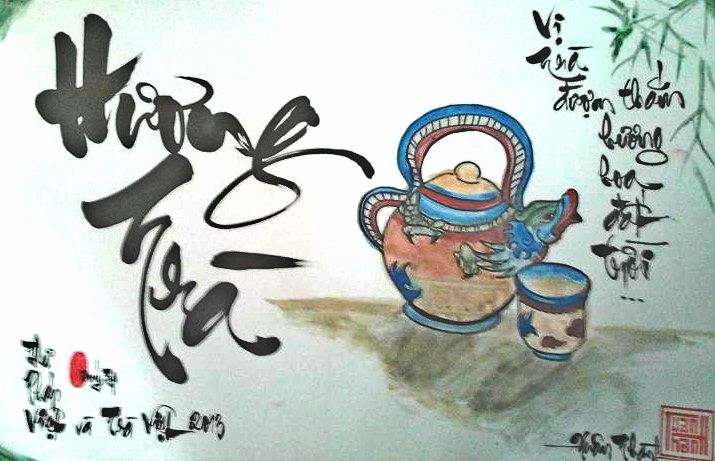 Hương
Trà
Vị
trà
đượm thắm
hương
hoa
đất
trời
...
Thư
Pháp
Việt và Trà Việt 2013
Xuân Thành
XUÂN
THÀNH